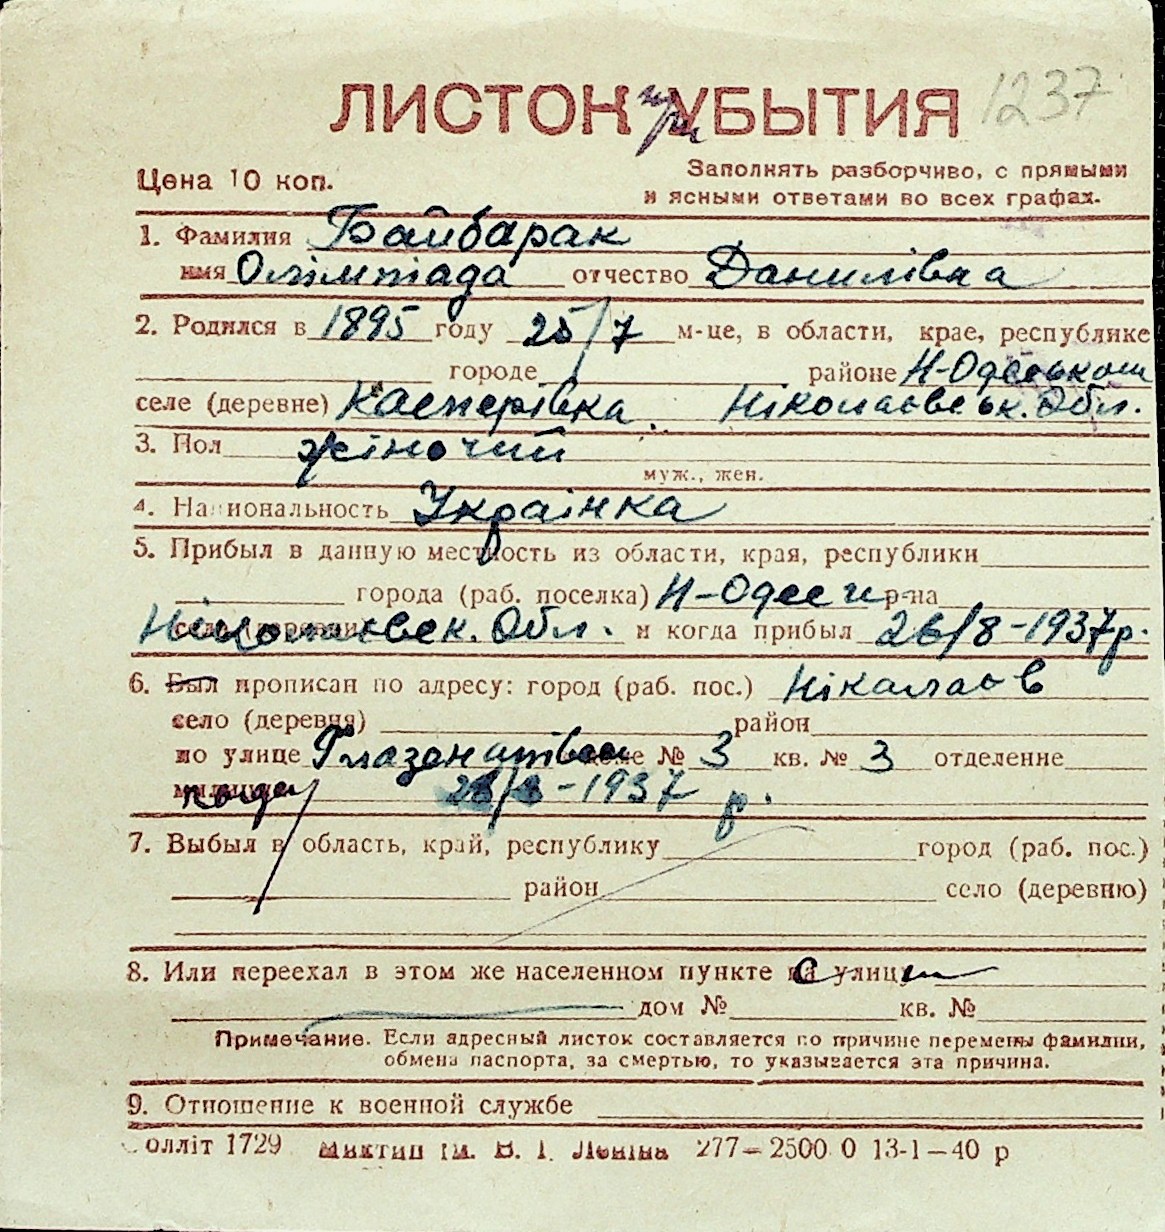 ЛИСТОК при УБЫТИЯ 1237
Цена 10 коп.
Заполнять разборчиво, с прямыми
и ясными ответами во всех графах.
1. Фамилия Байбарак
имя Олімпіада отчество Данилівна
2. Родился в 1895 году 25/7 м-це, в области, крае, республике
городе районе Н-Одеському
селе (деревне) Касперівка. Ніколаєвськ. Обл.
3. Пол жіночий
муж., жен.
4. Национальность Українка
5. Прибыл в данную местность из области, края, республики
города (раб. поселка) Н-Одесч р-на
Ніколаєвск. Обл. и когда прибыл 26/8-1937р.
6. Был прописан по адресу: город (раб. пос.) Ніколаєв
село (деревня) район
по улице доме № 3 кв. № 3 отделение
милиции 28/8-1937 р.
7. Выбыл в область, край, республику город (раб. пос.)
район село (деревню)
8. Или переехал в этом же населенном пункте на улицу
дом № кв. №
Примечание. Если адресный листок составляется по причине перемены фамилии,
обмена паспорта, за смертью, то указывается эта причина.
9. Отношение к военной службе
олліт 1729 Миктип ім. В. І. Леніна 277—2500 0 13-1—40 р